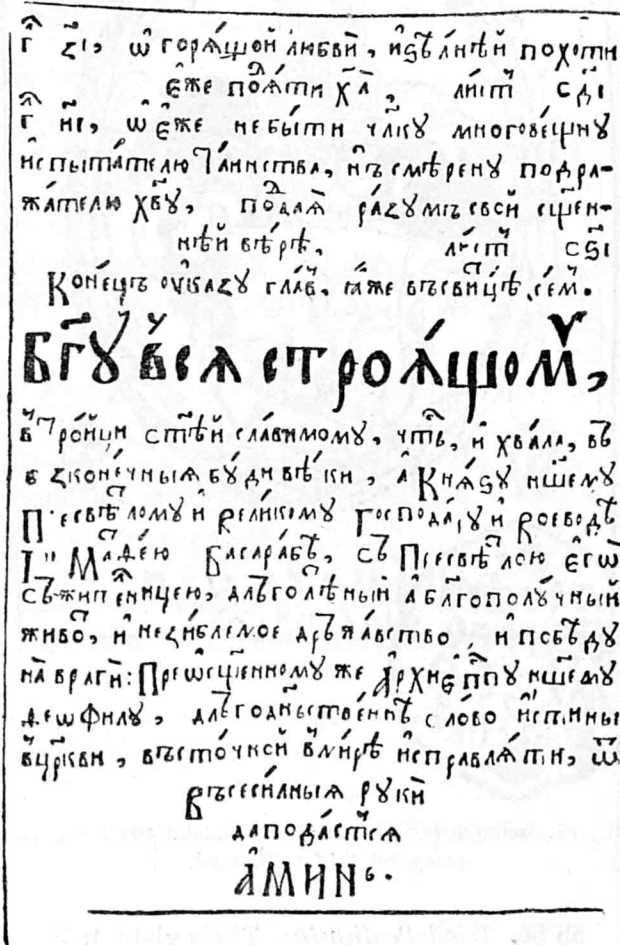 г҃ з҃і, ѡ҆ горѧ́щой любвѝ, и҆ ѕѣ́лнѣй похоти
є҆́же поѧ́ти хⷭ҇а̀ ли́стⷮ сд҃і
г҃ и҃і, ѡ҆ є҆́же не бы́ти чл҃кꙋ многовѣ́щнꙋ
и҆спыта́телю та́инства, нъ смѣ́ренꙋ подра-
жа́телю хв҃ꙋ, подаѧ̀ ра́зꙋмъ свой сщ҃ен-
нѣй вѣ́рѣ. ли́стⷮ сѕ҃і
Коне́цъ ѹ҆ка́зꙋ гла́в. ꙗ҆́же въ свиⷮцѣ́ се́мⷨ.
Бг҃ꙋ всѧ строѧ́щомꙋ,
в трⷪ҇йци ст҃ѣ́й сла́вимомꙋ, чтⷭ҇ь, и҆ хвала̀, въ
б зконе́чныѧ бꙋ́ди вѣ́ки, а҆ Кнѧ́ѕꙋ нш҃емꙋ
П есвѣⷮломꙋ и҆ вели́комꙋ Господа́ ꙋ и҆ воеводѣ
Іѡ Маⷴ҇ѳе́ю Басара́бѣ, съ П есвѣⷮлою є҆гѡ̀
съжи́те́лницею, дл҃ъголѣ́тный а҆ бл҃гополꙋ́чный
живо́тⷮ, и҆ незы́блемое дръжа́вство, и҆ побѣ́дꙋ
на врагѝ: Преѡсщ҃е́нномꙋ же А҆рхїепⷭ҇пꙋ нш҃емꙋ
Ѳеѡфи́лꙋ, дл҃ъгоде́нъстве́ннѣ сло́во и҆́стины
в цр҃кви, въсто́чной в ми́рѣ и҆справлѧ́ти, ѿ
Въсеси́лныѧ рꙋкѝ
да пода́стсѧ
А҆МИНЬ.